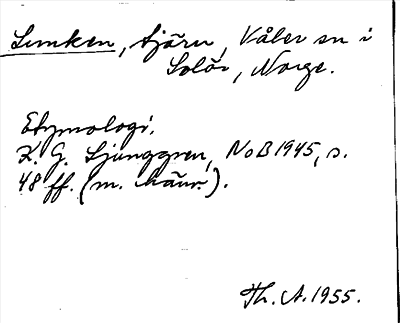 Lemken, tjärn, Våler sn i
Solör, Norge.
Etymologi.
K. G. Ljunggren, NoB 1945, s.
48 ff. (m. hänv.).
Th. A. 1955.